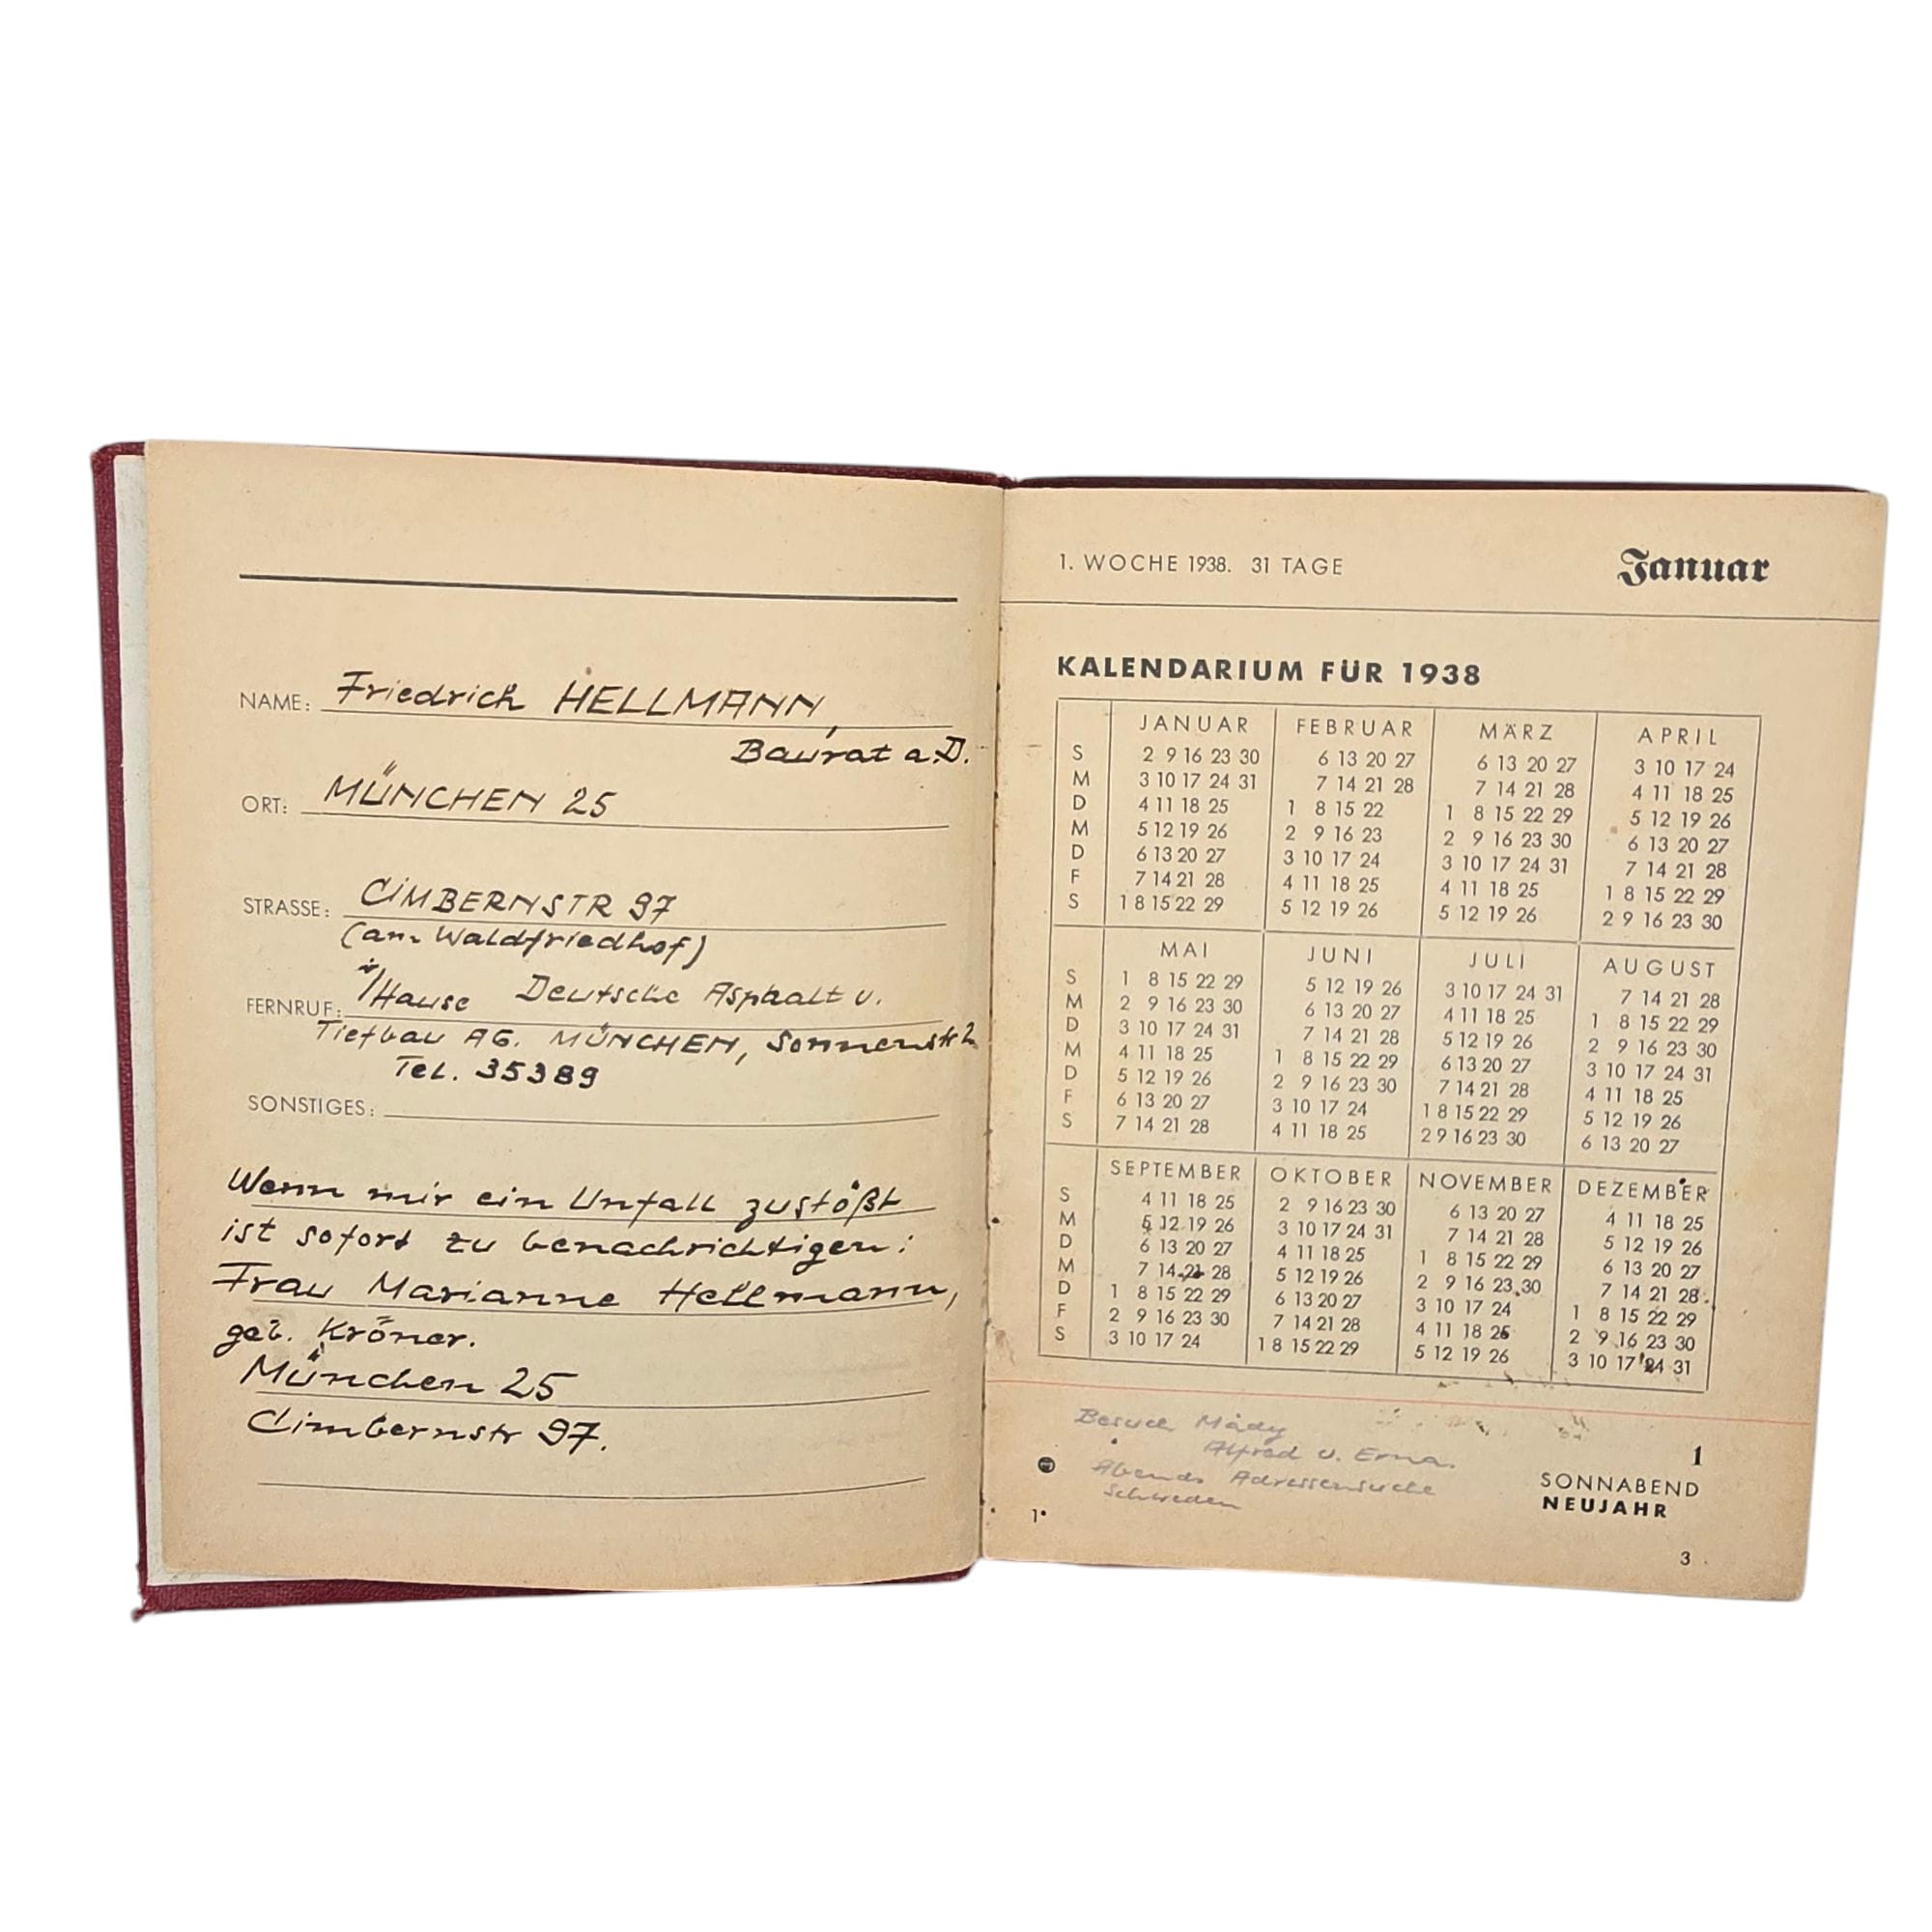 NAME: Friedrich HELLMANN,
Baurat a.D.
ORT: MÜNCHEN 25
STRASSE: CIMBERNSTR 97
(am Waldfriedhof)
FERNRUF: i/Hause Deutsche Asphalt u.
Tiefbau AG. MÜNCHEN, Sonnenstr
Tel. 35389
SONSTIGES:
Wenn mir ein Unfall zustößt
ist sofort zu benachrichtigen:
Frau Marianne Hellmann,
geb. Kröner.
München 25
Cimbernstr 97.
1. WOCHE 1938. 31 TAGE Januar
KALENDARIUM FÜR 1938
JANUAR FEBRUAR MÄRZ APRIL
S 2 9 16 23 30 6 13 20 27 6 13 20 27 3 10 17 24
M 3 10 17 24 31 7 14 21 28 7 14 21 28 4 11 18 25
D 4 11 18 25 1 8 15 22 1 8 15 22 29 5 12 19 26
M 5 12 19 26 2 9 16 23 2 9 16 23 30 6 13 20 27
D 6 13 20 27 3 10 17 24 3 10 17 24 31 7 14 21 28
F 7 14 21 28 4 11 18 25 4 11 18 25 1 8 15 22 29
S 1 8 15 22 29 5 12 19 26 5 12 19 26 2 9 16 23 30
MAI JUNI JULI AUGUST
S 1 8 15 22 29 5 12 19 26 3 10 17 24 31 7 14 21 28
M 2 9 16 23 30 6 13 20 27 4 11 18 25 1 8 15 22 29
D 3 10 17 24 31 7 14 21 28 5 12 19 26 2 9 16 23 30
M 4 11 18 25 1 8 15 22 29 6 13 20 27 3 10 17 24 31
D 5 12 19 26 2 9 16 23 30 7 14 21 28 4 11 18 25
F 6 13 20 27 3 10 17 24 1 8 15 22 29 5 12 19 26
S 7 14 21 28 4 11 18 25 2 9 16 23 30 6 13 20 27
SEPTEMBER OKTOBER NOVEMBER DEZEMBER
S 4 11 18 25 2 9 16 23 30 6 13 20 27 4 11 18 25
M 5 12 19 26 3 10 17 24 31 7 14 21 28 5 12 19 26
D 6 13 20 27 4 11 18 25 1 8 15 22 29 6 13 20 27
M 7 14 21 28 5 12 19 26 2 9 16 23 30 7 14 21 28
D 1 8 15 22 29 6 13 20 27 3 10 17 24 1 8 15 22 29
F 2 9 16 23 30 7 14 21 28 4 11 18 25 2 9 16 23 30
S 3 10 17 24 1 8 15 22 29 5 12 19 26 3 10 17 24 31
Besuch Mädy
Alfred u. Erna.
Abends Adressensuche
Schweden
1
SONNABEND
NEUJAHR
1*
3